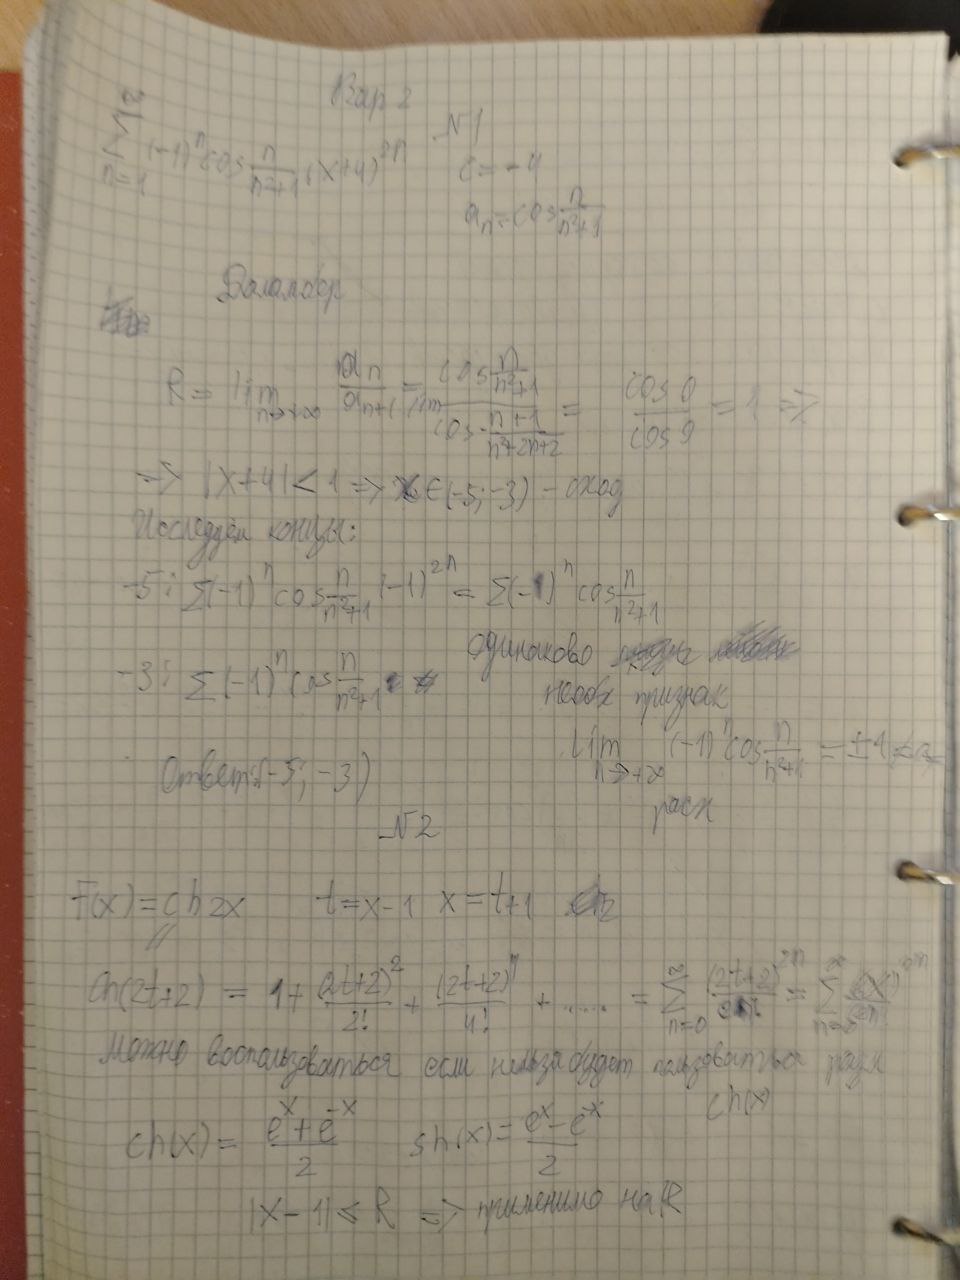 Вар 2
N1
∑_{n=1}^{∞} (-1)^n cos n/(n²+1) (x+4)^{2n}
c = -4
a_n = cos n/(n²+1)
Даламбер
R = lim_{n→+∞} a_n/a_{n+1} = lim (cos n/(n²+1))/(cos (n+1)/(n²+2n+2)) = cos 0/cos 0 = 1 =>
=> |x+4| < 1 => x ∈ (-5; -3) - сход
Исследуем концы:
-5: ∑(-1)^n cos n/(n²+1) (-1)^{2n} = ∑(-1)^n cos n/(n²+1)
одинаково
-3: ∑(-1)^n cos n/(n²+1)
необх признак
lim_{n→+∞} (-1)^n cos n/(n²+1) = ±1
расх
Ответ: (-5; -3)
N2
F(x) = ch 2x t = x-1 x = t+1
ch(2t+2) = 1 + (2t+2)²/2! + (2t+2)^4/4! + ..... = ∑_{n=0}^{∞} (2t+2)^{2n}/2n! = ∑_{n=0}^{∞}
можно воспользоваться если нельзя будет пользоваться разл
ch(x)
ch(x) = (e^x + e^{-x})/2 sh(x) = (e^x - e^{-x})/2
|x-1| ≤ R => применимо на R